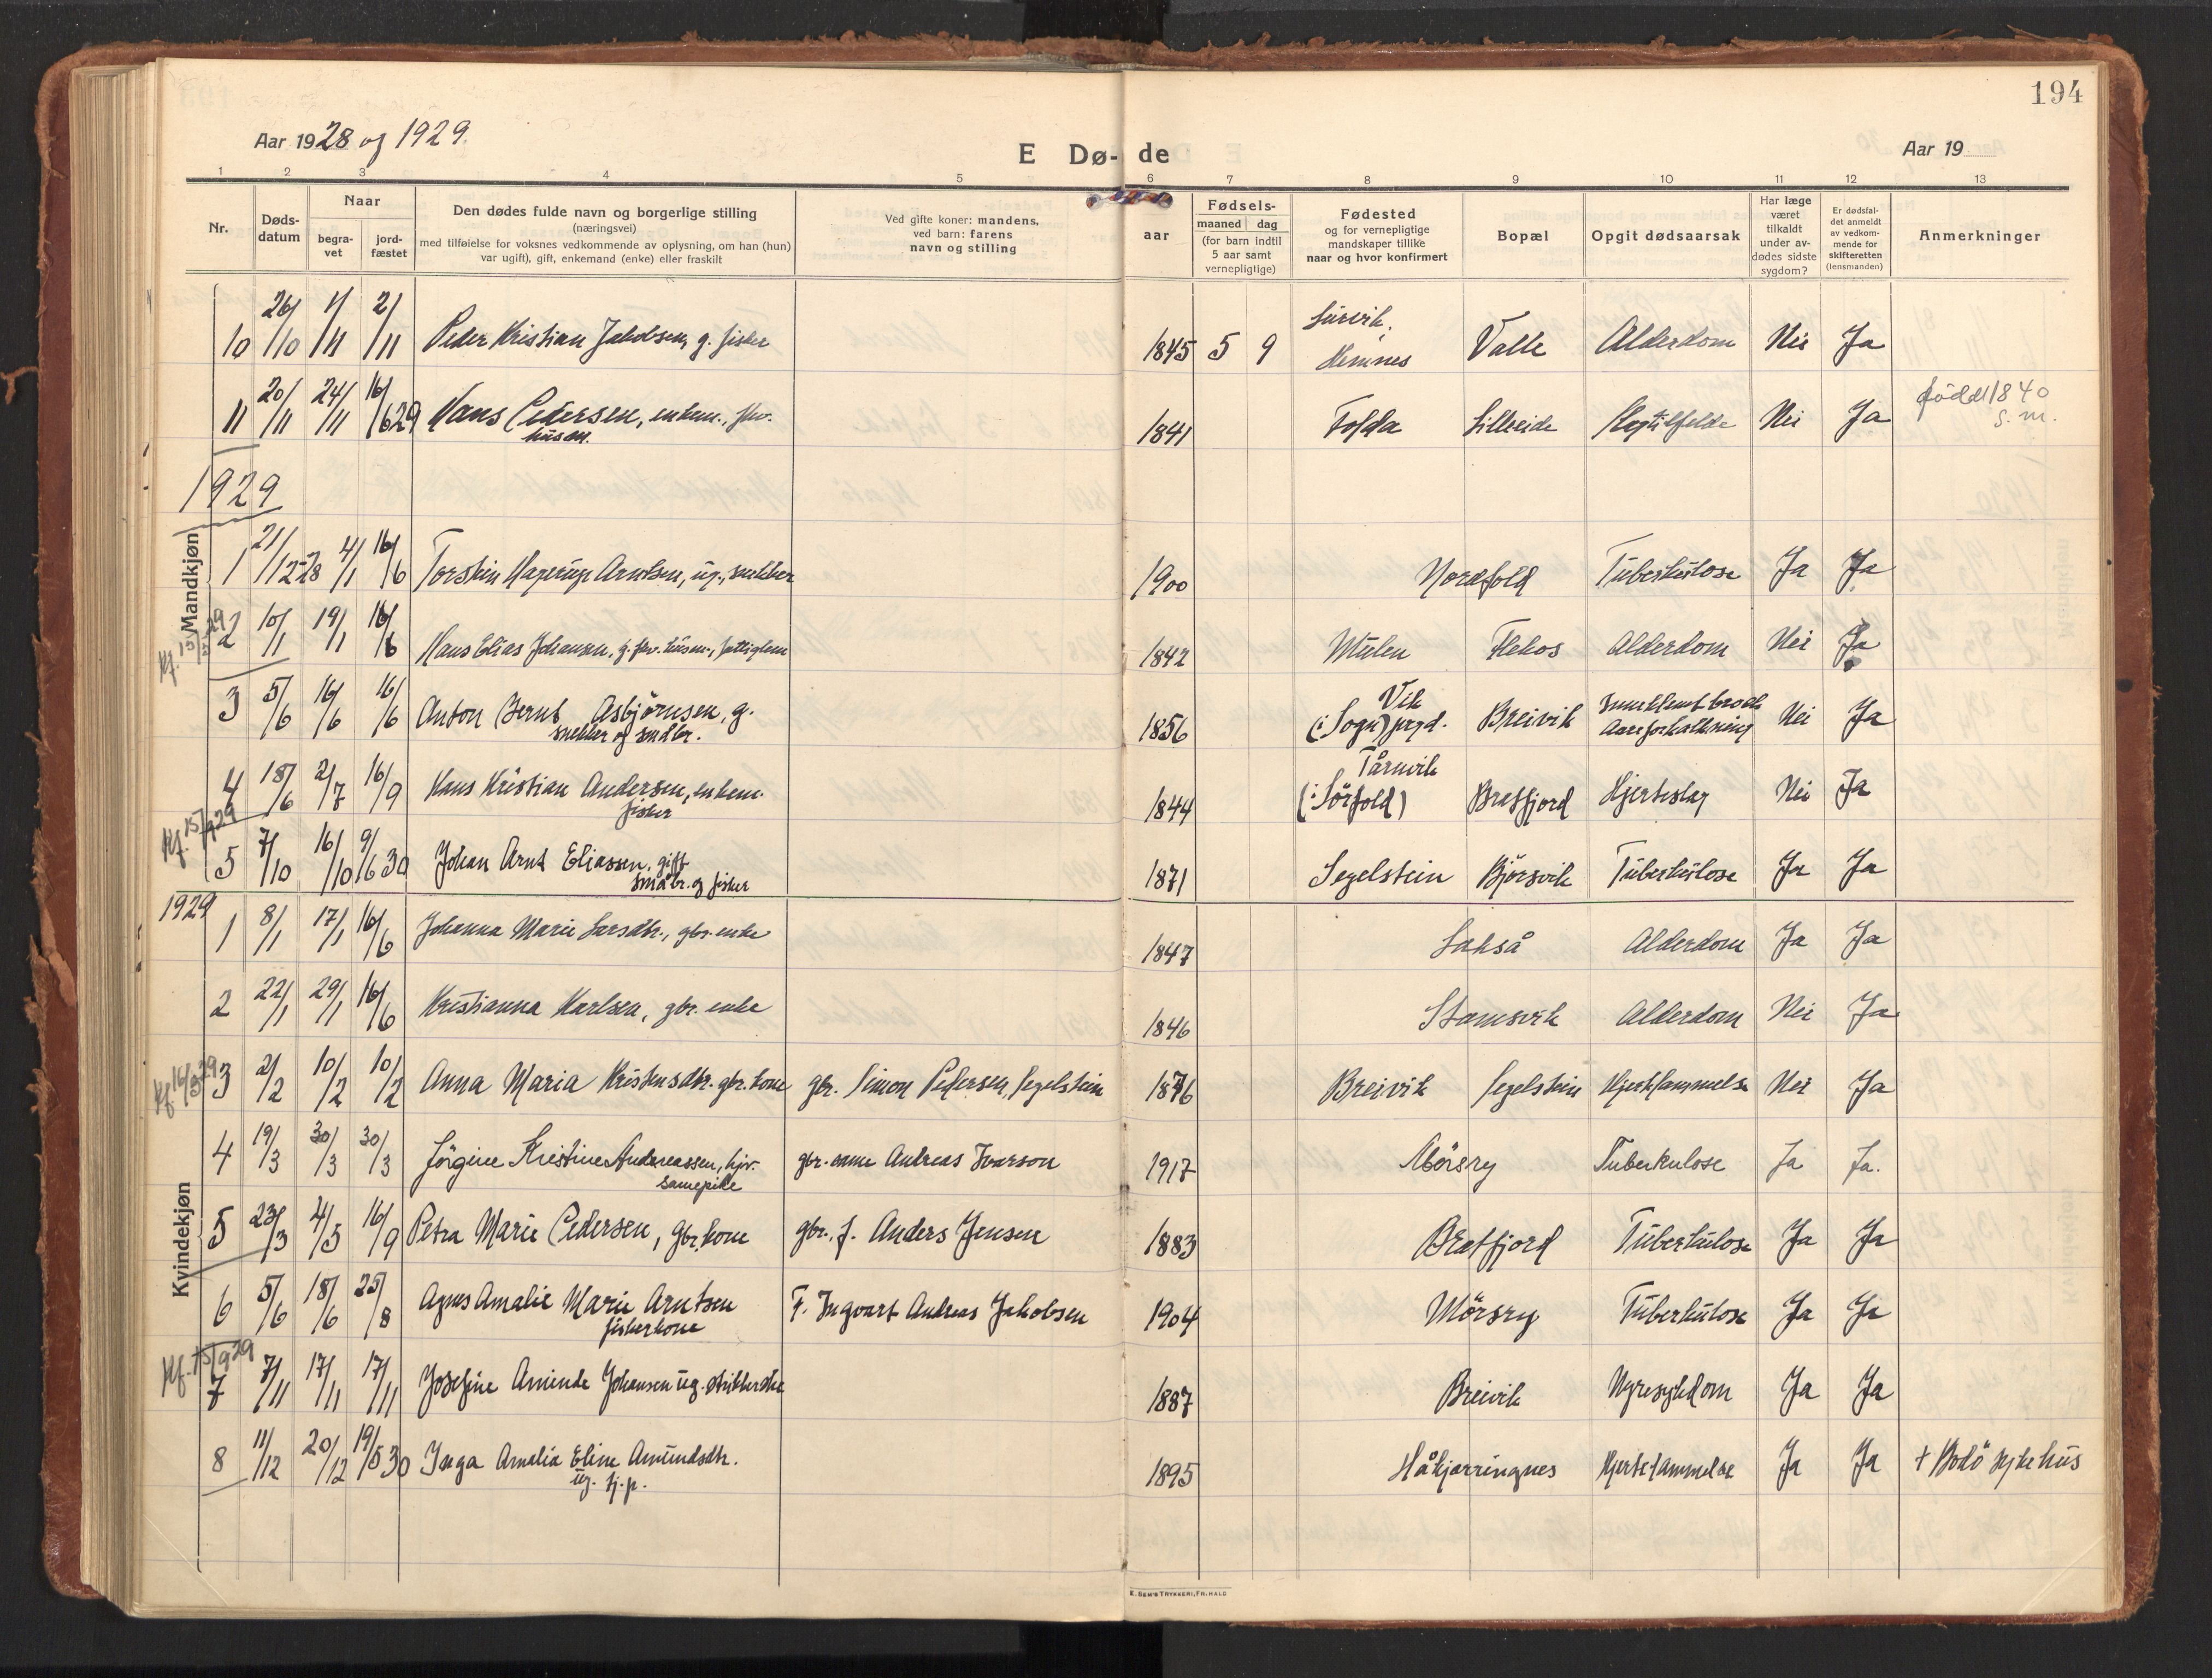 194
Aar 1928 og 1929.
E Dø- de
Aar 19
1 2 3 4 5 6 7 8 9 10 11 12 13
Nr.
Døds-
datum
Naar
begra-
vet
jord-
fæstet
Den dødes fulde navn og borgerlige stilling
(næringsvei)
med tilføielse for voksnes vedkommende av oplysning, om han (hun)
var ugift), gift, enkemand (enke) eller fraskilt
Ved gifte koner: mandens,
ved barn: farens
navn og stilling
aar
Fødsels-
maaned dag
(for barn indtil
5 aar samt
vernepligtige)
Fødested
og for vernepligtige
mandskaper tillike
naar og hvor konfirmert
Bopæl
Opgit dødsaarsak
Har læge
været
tilkaldt
under av-
dødes sidste
sygdom?
Er dødsfal-
det anmeldt
av vedkom-
mende for
skifteretten
(lensmanden)
Anmerkninger
10 26/10 1/11 2/11 Peder Kristian Jakobsen, g. fisker 1845 5 9 Hemnes Valle Alderdom Nei Ja
11 20/11 24/11 16/6 29 Hans Pedersen, enkem., fhv.
husm.
1841 Folda Lilleeide Slagtilfelde Nei Ja født 1840
s.m.
1929
Mandkjøn
1 21/12-28 4/1 16/6 Torstein Hagerup Arntsen, ug., snekker 1900 Nordfold Tuberkulose Ja Ja
2 10/1 19/1 16/6 Hans Elias Johansen, g. fhv. husm., fattiglem 1842 Mulen Flekos Alderdom Nei Ja
3 5/6 16/6 16/6 Anton Bernt Asbjörnsen, g.
snekker og småbr.
1856 Vik
(i Sogn) prgd. Breivik
Aareforkalkning Nei Ja
4 18/6 2/7 16/9 Hans Kristian Andersen, enkem.
fisker
1844 Tårnvik
(i Sörfold) Brætfjord Hjerteslag Nei Ja
Kf. 15/9 29
5 7/10 16/10 9/6 30 Johan Arnt Eliassen, gift
småbr. og fisker
1871 Segelstein Bjørsvik Tuberkulose Ja Ja
1929
1 8/1 17/1 16/6 Johanna Marie Larsdtr., gbr. enke 1847 Lakså Alderdom Ja Ja
2 22/1 29/1 16/6 Kristianna Karlsen, gbr. enke 1846 Stamsvik Alderdom Nei Ja
Kf 16/3 29
3 2/2 10/2 10/2 Anna Maria Kristensdtr. gbr. kone gbr. Simon Pedersen, Segelstein 1876 Breivik Segelstein Hjertelammelse Nei Ja
4 19/3 30/3 30/3 Jörgine Kristine Andreassen, hjv.
samepike
gbr. same Andreas Ivarson 1917 Mörsry Tuberkulose Ja Ja.
Kvindekjøn
5 23/3 4/5 16/9 Petra Marie Pedersen, gbr. kone gbr., f. Anders Jensen 1883 Brætfjord Tuberkulose Ja Ja
6 5/6 18/6 25/8 Agnes Amalie Marie Arntsen
fiskerkone
F. Ingvart Andreas Jakobsen 1904 Mörsry Tuberkulose Ja Ja
Kf. 15/9 29
7 7/11 17/11 17/11 Josefine Aminde Johansen ug. strikkerske 1887 Breivik Nyresykdom Ja Ja
8 11/12 20/12 19/5 30 Inga Amalia Eline Amundsdtr.
ug. tj.p.
1895 Håkjærringnes Hjertelammelse Ja Ja + Bodö sykehus
E. SEM'S TRYKKERI, FR.HALD